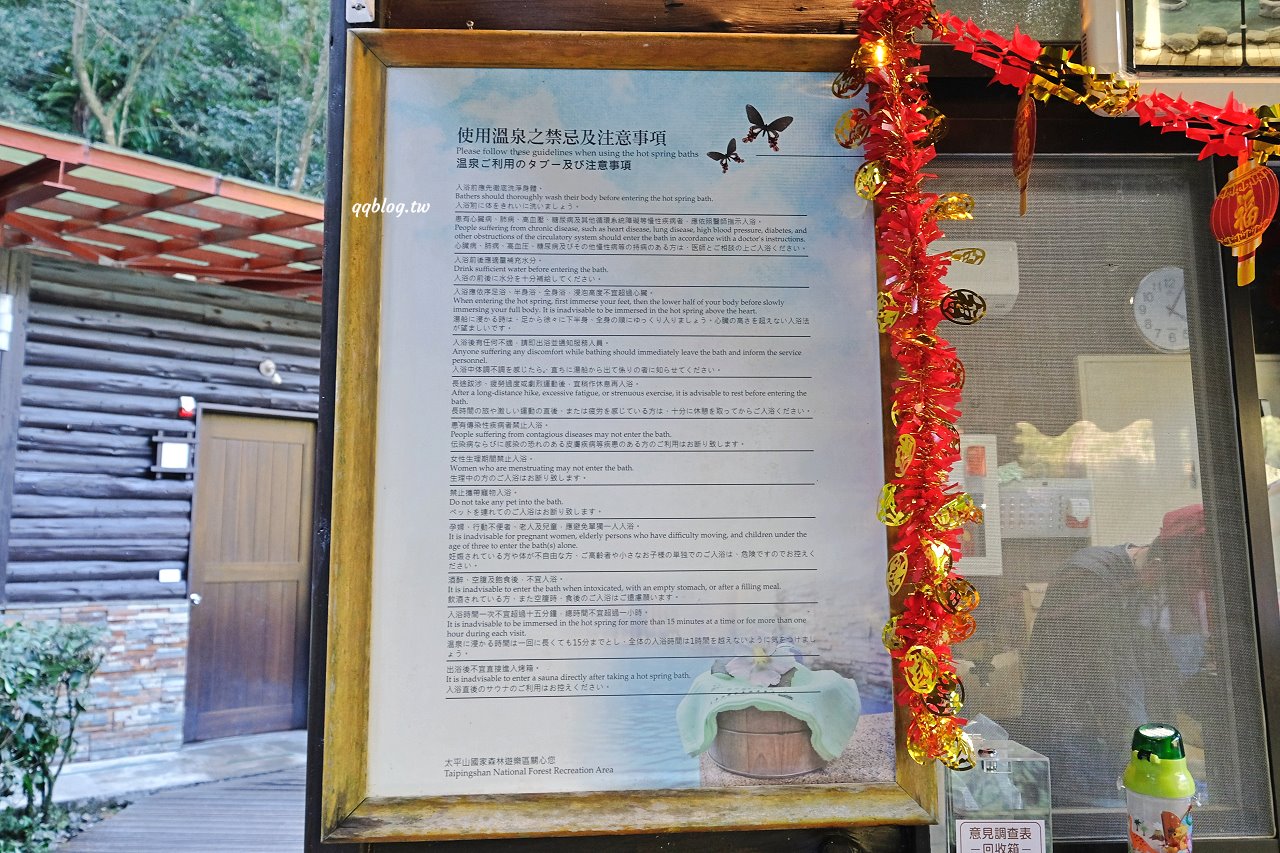 使用溫泉之禁忌及注意事項
Please follow these guidelines when using the hot spring baths
温泉ご利用のタブー及び注意事項
qqblog.tw
入浴前應先徹底洗淨身體。
Bathers should thoroughly wash their body before entering the hot spring bath.
入浴前に体をきれいに洗いましょう。
患有心臟病、肺病、高血壓、糖尿病及其他循環系統障礙等慢性疾病者，應依照醫師指示入浴。
People suffering from chronic disease, such as heart disease, lung disease, high blood pressure, diabetes, and
other obstructions of the circulatory system should enter the bath in accordance with a doctor's instructions.
心臟病、肺病、高血圧、糖尿病及びその他慢性病等の持病のある方は、医師とご相談の上ご入浴ください。
入浴前後應適量補充水分。
Drink sufficient water before entering the bath.
入浴の前後に水分を十分補給してください。
入浴應依序足浴、半身浴、全身浴，浸泡高度不宜超過心臟。
When entering the hot spring, first immerse your feet, then the lower half of your body before slowly
immersing your full body. It is inadvisable to be immersed in the hot spring above the heart.
湯船に浸かる時は、足から徐々に下半身、全身の順にゆっくり入りましょう。心臓の高さを超えない入浴法
が望ましいです。
入浴後有任何不適，請即出浴並通知服務人員。
Anyone suffering any discomfort while bathing should immediately leave the bath and inform the service
personnel.
入浴中体調不調を感じたら、直ちに湯船から出て係りの者に知らせてください。
長途跋涉、疲勞過度或劇烈運動後，宜稍作休息再入浴。
After a long-distance hike, excessive fatigue, or strenuous exercise, it is advisable to rest before entering the
bath.
長時間の旅や激しい運動の直後、または疲労を感じている方は、十分に休憩を取ってからご入浴ください。
患有傳染性疾病者禁止入浴。
People suffering from contagious diseases may not enter the bath.
伝染病ならびに感染の恐れのある皮膚疾病等疾患のある方のご利用はお断り致します。
女性生理期間禁止入浴。
Women who are menstruating may not enter the bath.
生理中の方のご入浴はお断り致します。
禁止攜帶寵物入浴。
Do not take any pet into the bath.
ペットを連れてのご入浴はお断り致します。
孕婦、行動不便者、老人及兒童，應避免單獨一人入浴。
It is inadvisable for pregnant women, elderly persons who have difficulty moving, and children under the
age of three to enter the bath(s) alone.
妊娠されている方や体が不自由な方、ご高齢者や小さなお子様の単独でのご入浴は、危険ですのでお控えく
ださい。
酒醉、空腹及飽食後，不宜入浴。
It is inadvisable to enter the bath when intoxicated, with an empty stomach, or after a filling meal.
飲酒されている方、また空腹時、食後のご入浴はご遠慮願います。
入浴時間一次不宜超過十五分鐘，總時間不宜超過一小時。
It is inadvisable to be immersed in the hot spring for more than 15 minutes at a time or for more than one
hour during each visit.
温泉に浸かる時間は一回に長くても15分までとし、全体の入浴時間は1時間を越えないように気をつけまし
ょう。
出浴後不宜直接進入烤箱。
It is inadvisable to enter a sauna directly after taking a hot spring bath.
入浴直後のサウナのご利用はお控えください。
太平山國家森林遊樂區關心您
Taipingshan National Forest Recreation Area
福
意見調查表
－回收箱－